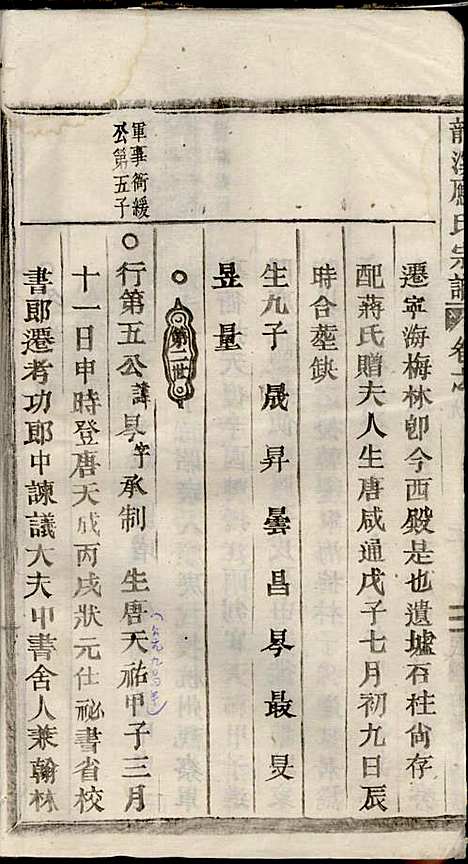 龍溪應氏宗譜 卷之
遷寧海梅林卽今西殿是也遺墟石柱尙存
配蔣氏贈夫人生唐咸通戊子七月初九日辰
時合塟缺
生九子晟昇曇昌昪最旻
昱量
第二世
軍事衙緩
公第五子
行第五公諱昪字承制 生唐天祐甲子三月
十一日申時登唐天成丙戌狀元仕祕書省校
書郎遷考功郎中諫議大夫中書舍人兼翰林